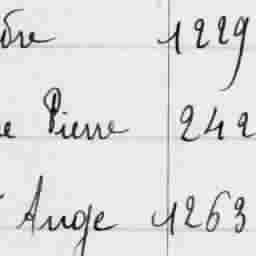 dre 1229
e Pierre 242
Ange 1263